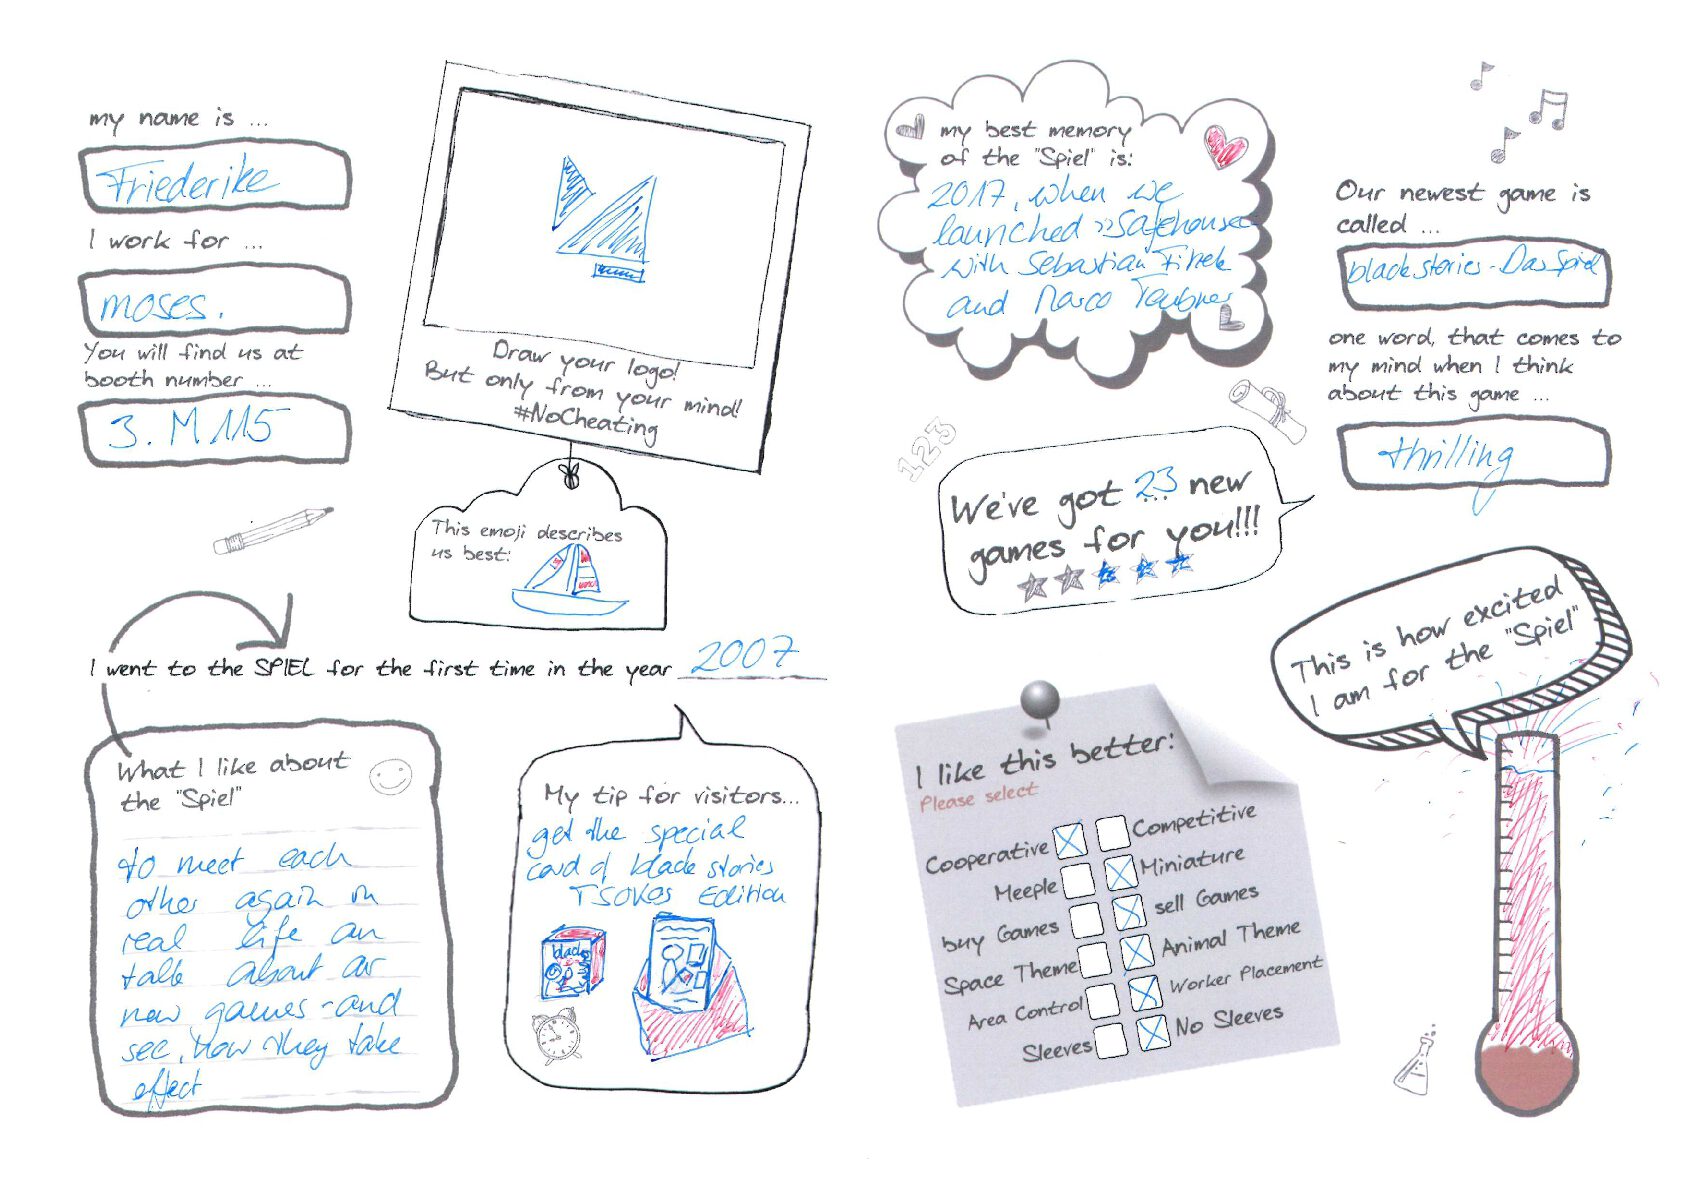 my name is ...
Friederike
I work for ...
moses.
You will find us at
booth number ...
3. M 115
Draw your logo!
But only from your mind!
#NoCheating
This emoji describes
us best:
I went to the SPIEL for the first time in the year 2007
What I like about
the "Spiel"
to meet each
other again in
real life an
talk about our
new games - and
see, how they take
effect
My tip for visitors...
get the special
card of black stories
TSOKOS Edition
black
my best memory
of the "Spiel" is:
2017, when we
launched »Safehouse«
with Sebastian Fitzek
and Marco Teubner
Our newest game is
called ...
black stories - Das Spiel
one word, that comes to
my mind when I think
about this game ...
thrilling
123
We've got 23 new
games for you!!!
This is how excited
I am for the "Spiel"
I like this better:
Please select
Cooperative Competitive
Meeple Miniature
buy Games sell Games
Space Theme Animal Theme
Area Control Worker Placement
Sleeves No Sleeves